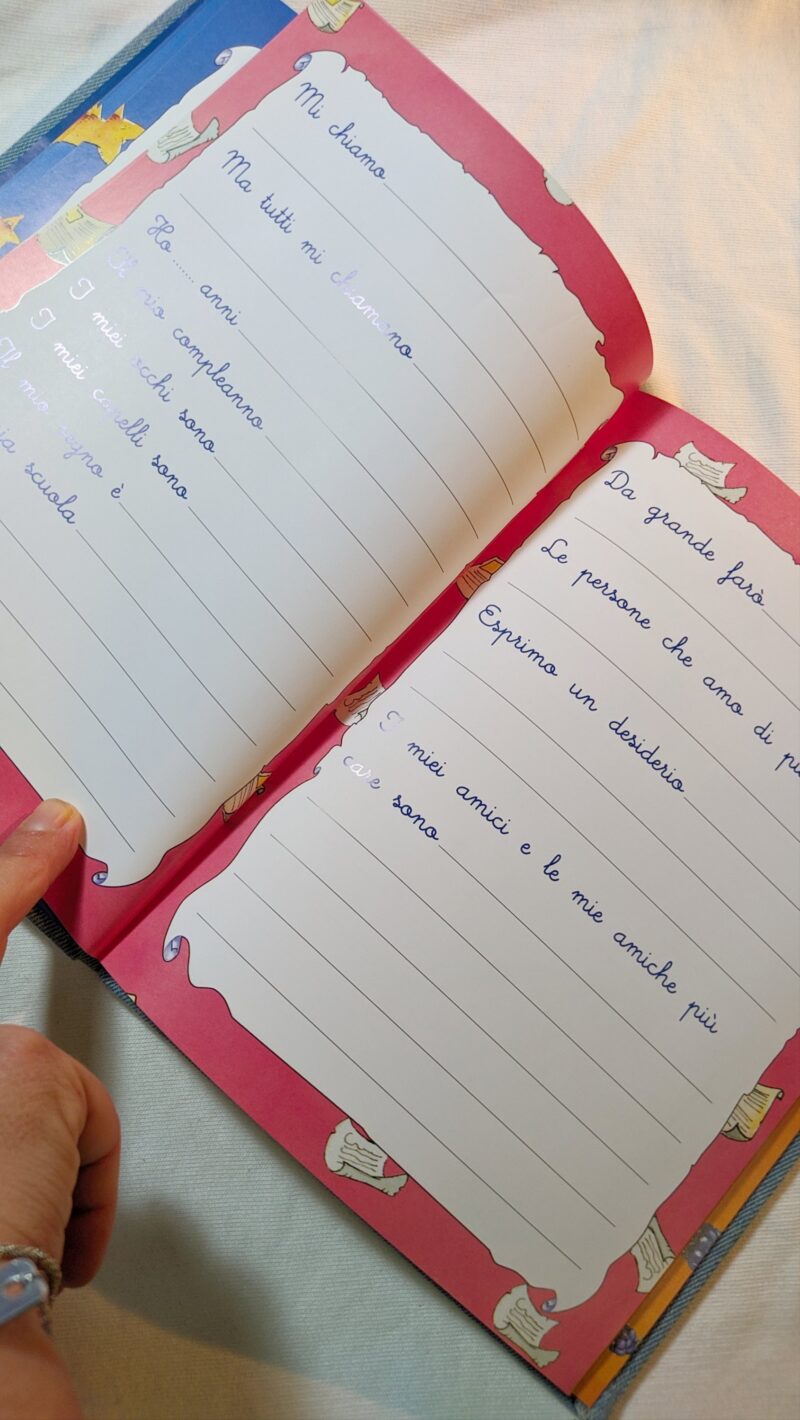 Mi chiamo
Ma tutti mi chiamano
Ho ...... anni
Il mio compleanno
I miei occhi sono
I miei capelli sono
Il mio segno è
scuola
Da grande farò
Le persone che amo di
Esprimo un desiderio
I miei amici e le mie amiche più
care sono